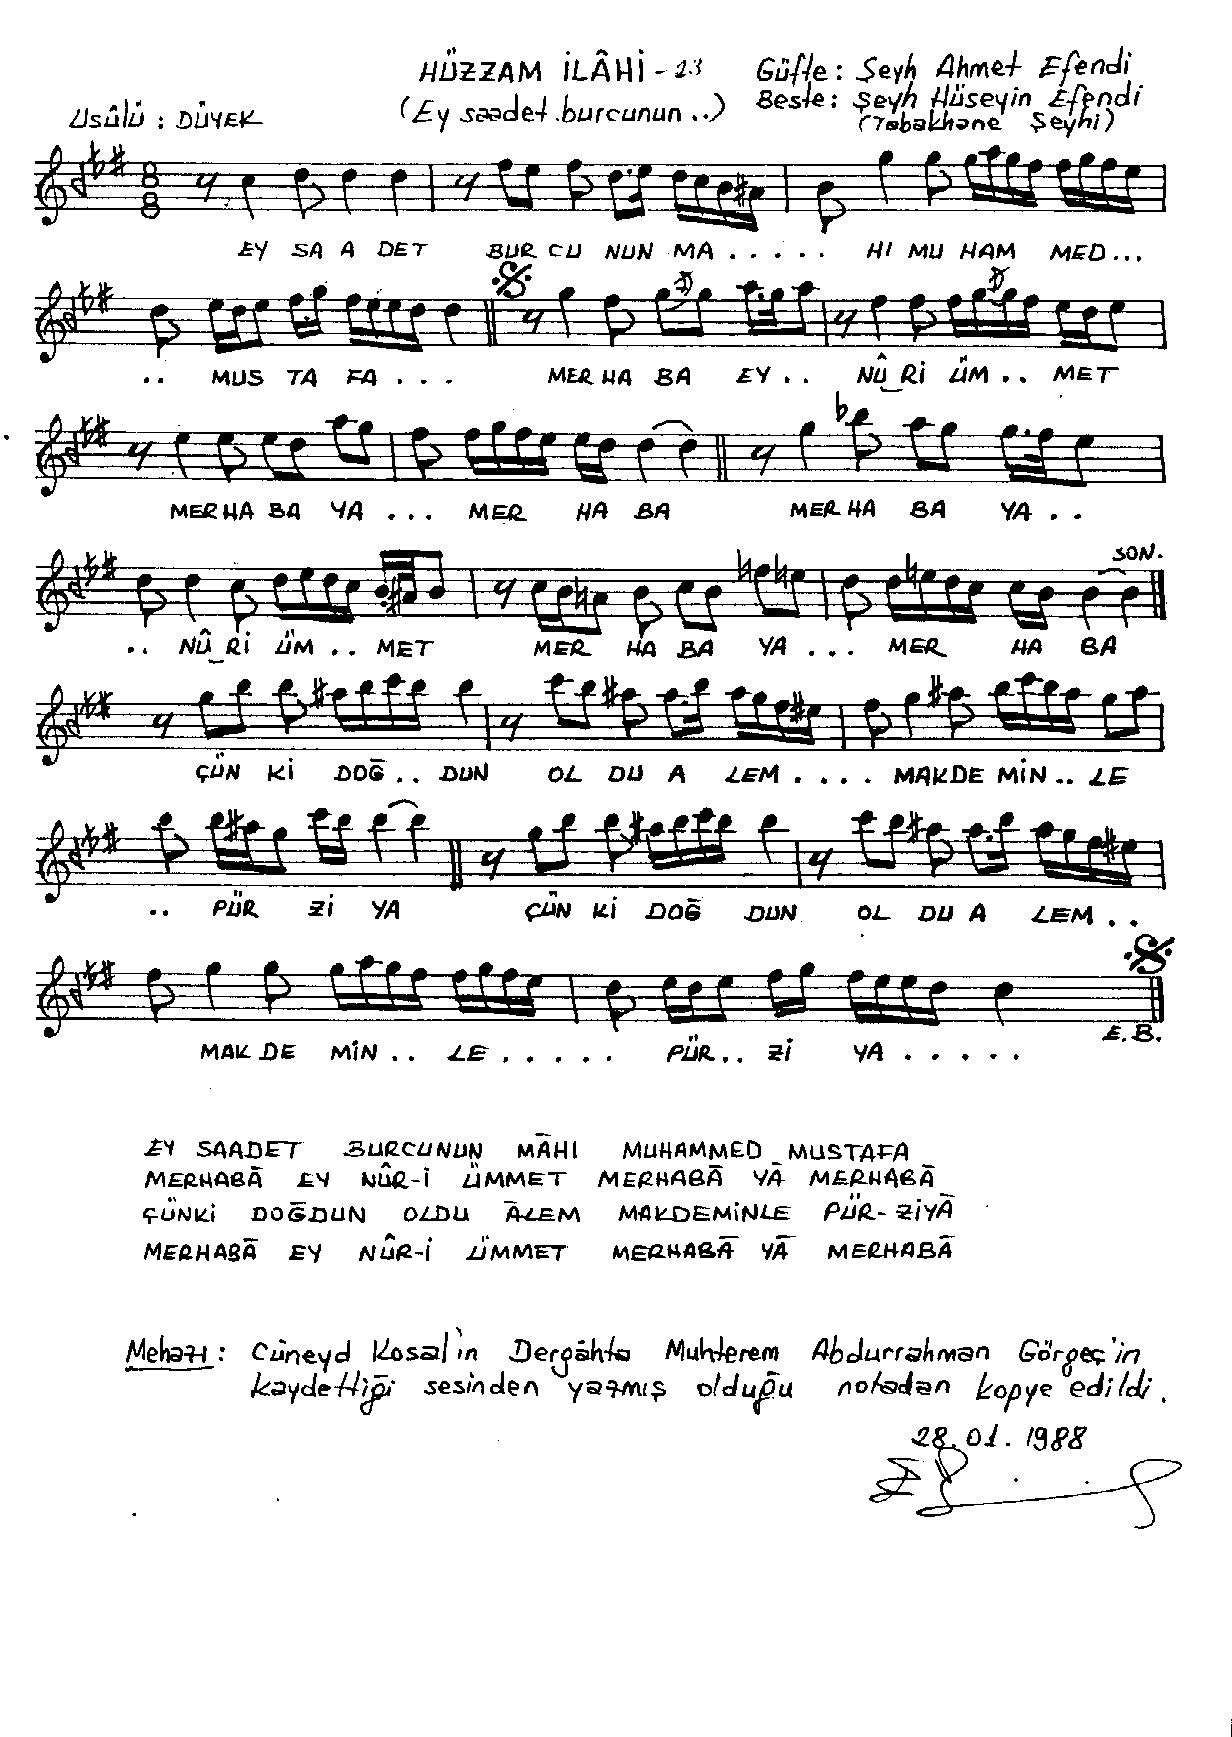 HÜZZAM İLÂHİ - 23
Güfte : Şeyh Ahmet Efendi
Usûlü : DÜYEK
(Ey saadet burcunun ..)
Beste : Şeyh Hüseyin Efendi
(Tabakhane Şeyhi)
EY SA A DET BUR CU NUN MA . . . . . HI MU HAM MED...
.. MUS TA FA . . . MER HA BA EY . . NÛ_Rİ ÜM .. MET
MER HA BA YA . . . MER HA BA MER HA BA YA . .
SON.
.. NÛ_Rİ ÜM . . MET MER HA BA YA . . . MER HA BA
ÇÜN Kİ DOĞ . . DUN OL DU A LEM . . . . MAKDE MİN .. LE
.. PÜR Zİ YA ÇÜN Kİ DOĞ DUN OL DU A LEM . .
MAK DE MİN . . LE . . . . . PÜR . . Zİ YA . . . . .
E.B.
EY SAADET BURCUNUN MĀHI MUHAMMED MUSTAFA
MERHABĀ EY NÛR-İ ÜMMET MERHABĀ YĀ MERHABĀ
ÇÜNKİ DOĞDUN OLDU ĀLEM MAKDEMİNLE PÜR-ZİYĀ
MERHABĀ EY NÛR-İ ÜMMET MERHABĀ YĀ MERHABĀ
Mehazı : Cüneyd Kosal'ın Dergâhta Muhterem Abdurrahman Görgeç'in
kaydettiği sesinden yazmış olduğu notadan kopye edildi.
28.01.1988